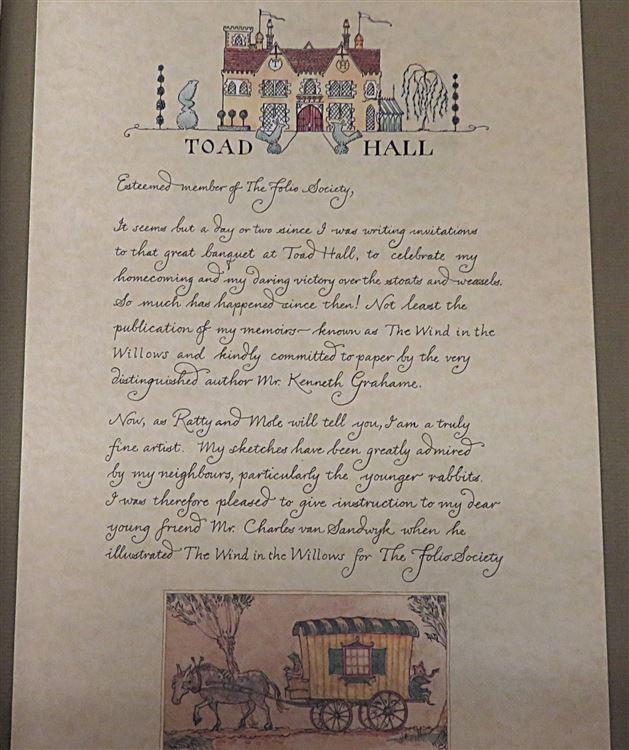 TOAD HALL
Esteemed member of The Folio Society,
It seems but a day or two since I was writing invitations
to that great banquet at Toad Hall, to celebrate my
homecoming and my daring victory over the stoats and weasels.
So much has happened since then! Not least the
publication of my memoirs – known as The Wind in the
Willows and kindly committed to paper by the very
distinguished author Mr. Kenneth Grahame.
Now, as Ratty and Mole will tell you, I am a truly
fine artist. My sketches have been greatly admired
by my neighbours, particularly the younger rabbits.
I was therefore pleased to give instruction to my dear
young friend Mr. Charles van Sandwyk when he
illustrated The Wind in the Willows for The Folio Society